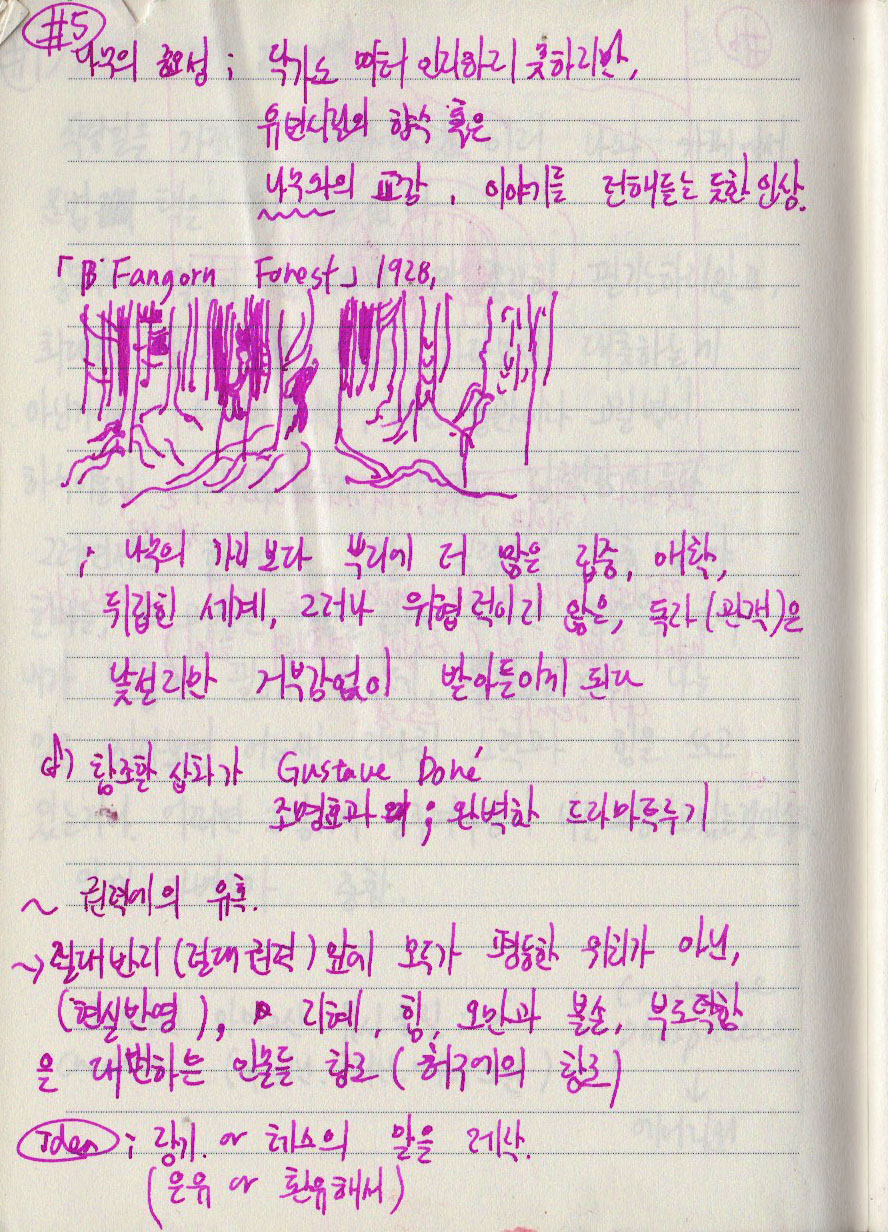 #5
나무의 중요성 ; 작가도 미처 인지하지 못하지만,
유년시절의 향수 혹은
나무와의 교감, 이야기를 전해듣는 듯한 인상.
「B Fangorn Forest」 1928,
; 나무의 가지보다 뿌리에 더 많은 집중, 애착,
뒤집힌 세계, 그러나 위협적이지 않은, 독자(관객)은
낯설지만 거부감없이 받아들이게 된다
참조할 삽화가 Gustave Doré
조명효과 ; 완벽한 드라마트루기
~ 권력에의 유혹.
~> 절대반지 (절대권력) 앞에 모두가 평등한 위치가 아닌,
(현실반영), 지혜, 힘, 오만과 불손, 부도덕함
을 대변하는 인물들 창조 (허구에의 창조)
Idea ; 장기 or 체스의 말을 제작.
(은유 or 환유해서)